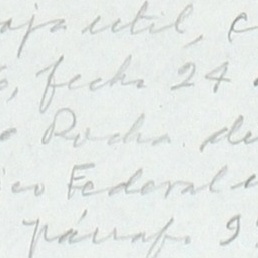 oja util, c
fecha 24
o Rocha de
ico Federal e
párrafo 9